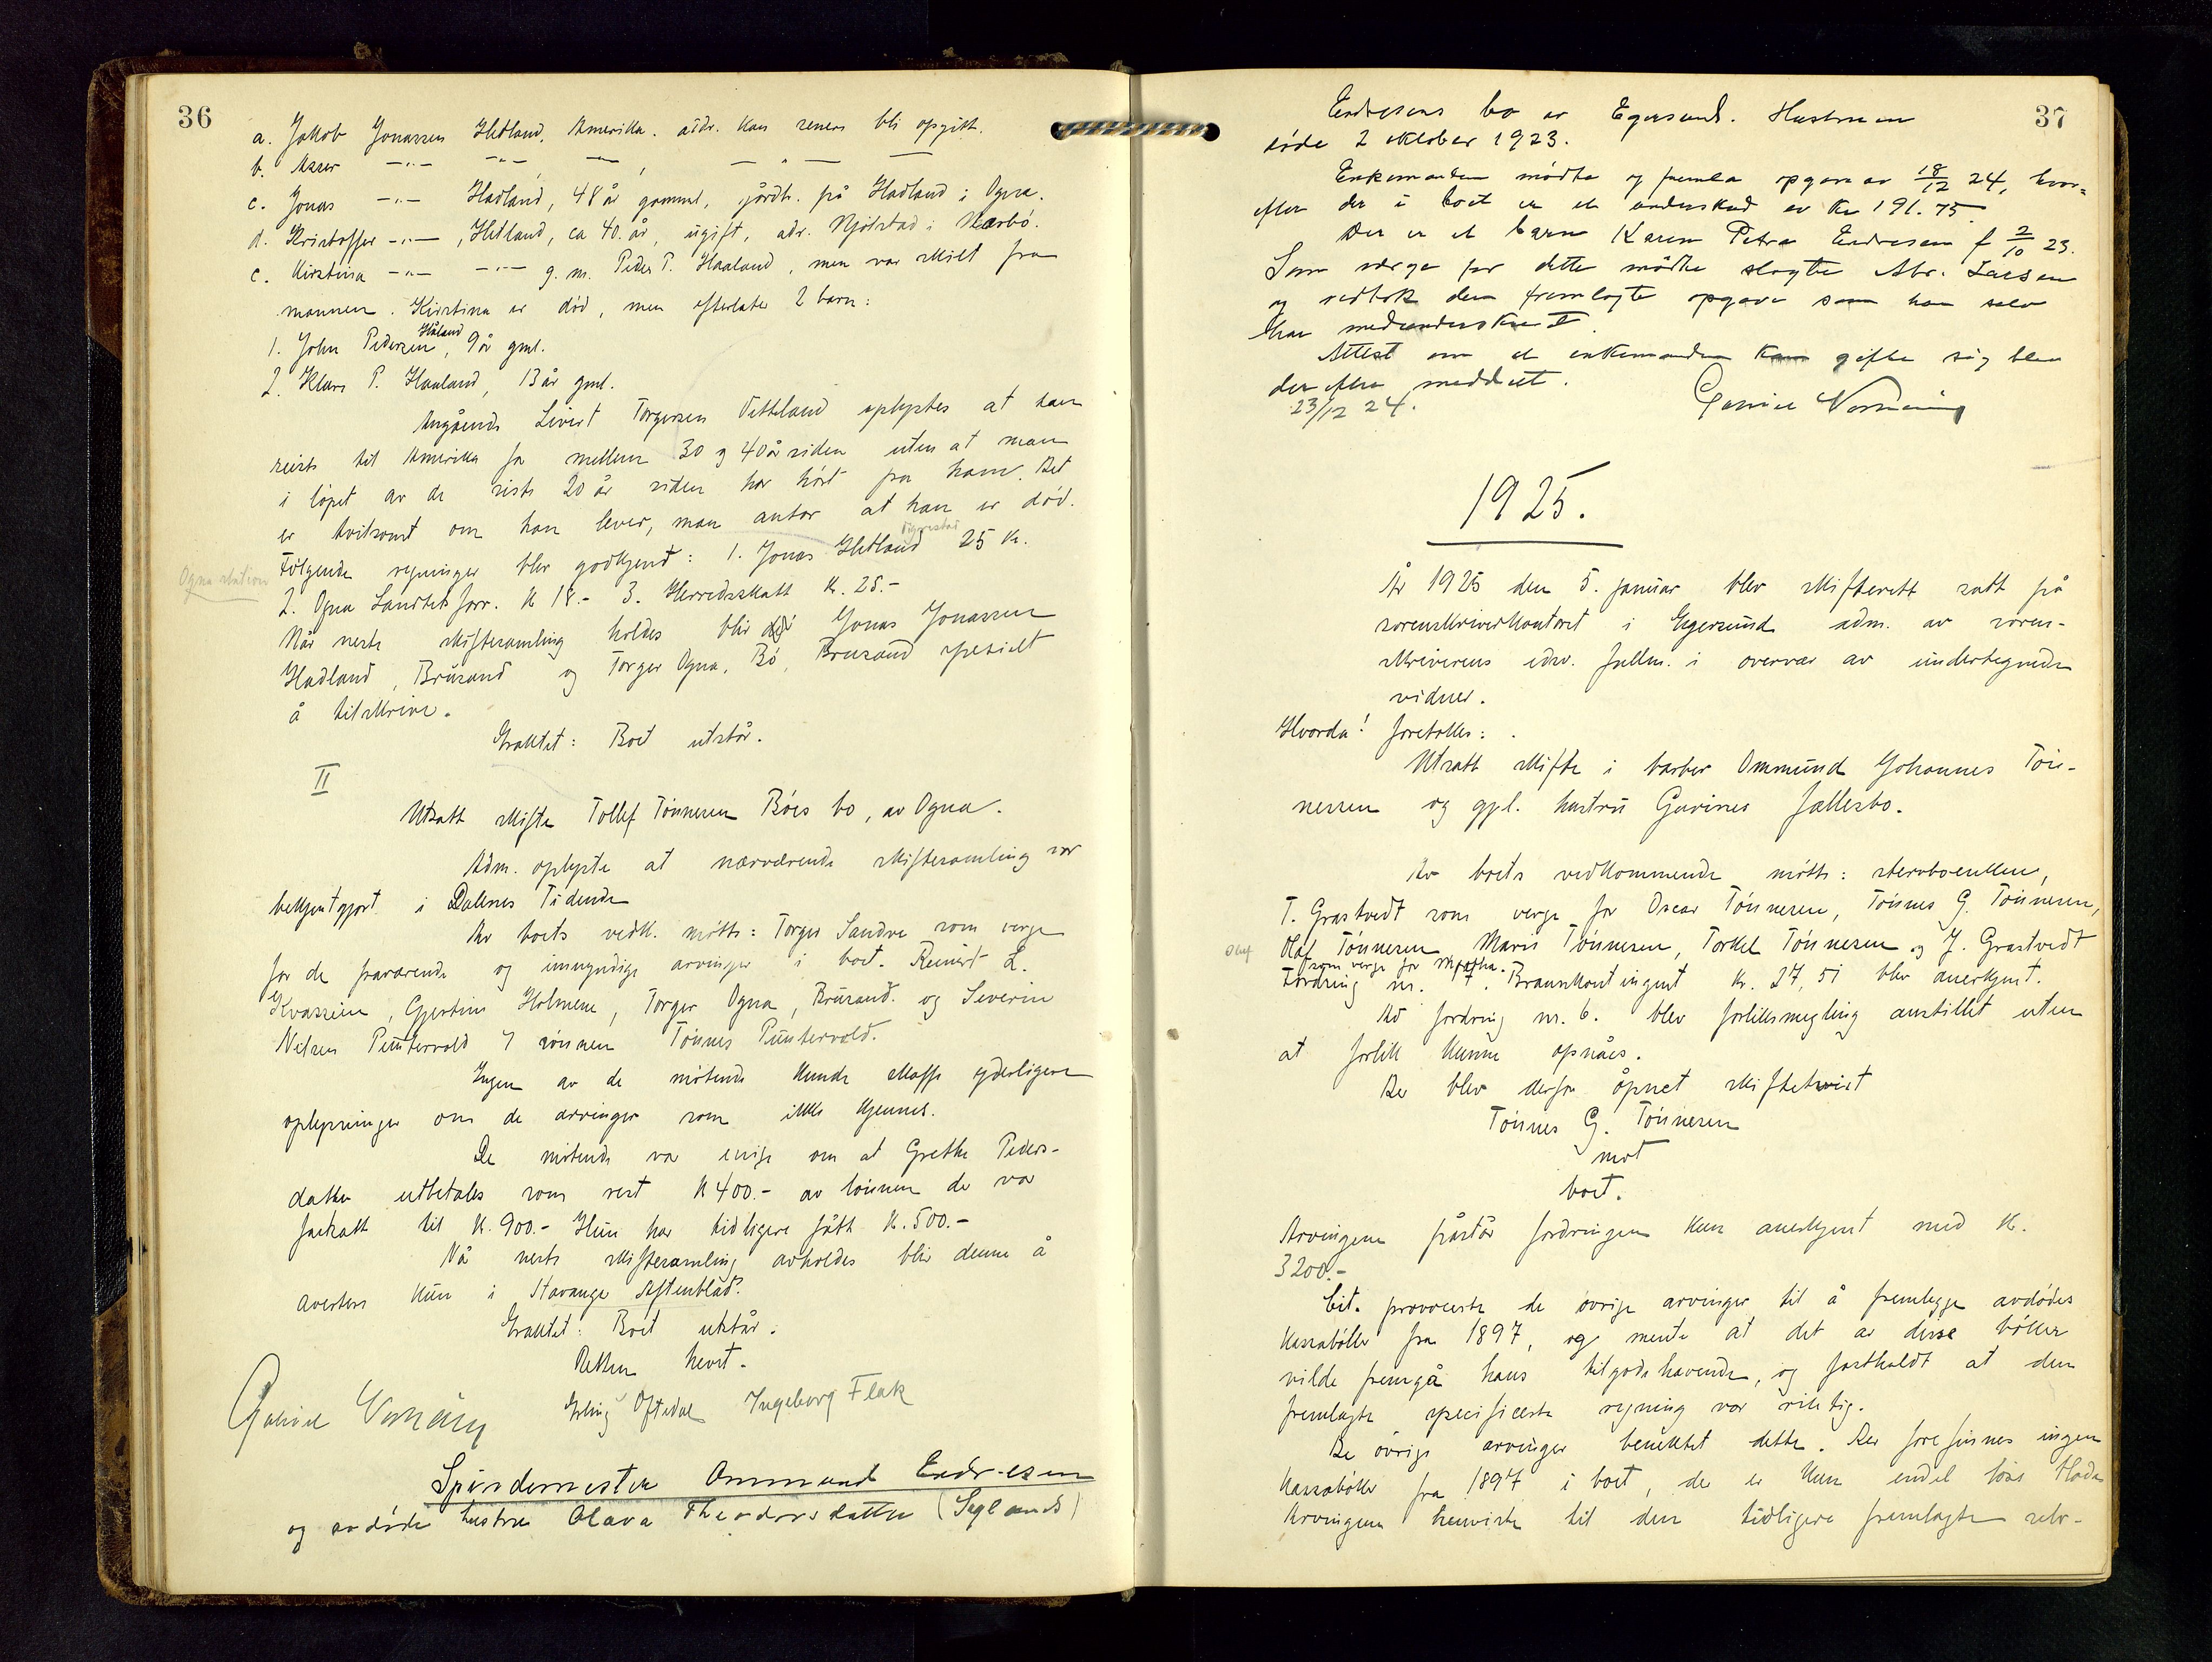 36
a. Jakob Jonassen Hetland, Amerika. addr. kan senere bli opgitt.
b. Asser —"— —"— — , — " — —
c. Jonas —"— Hadland, 48 år gammel, gårdbr. på Hadland i Ogna.
d. Kristoffer —"—, Hetland, ca 40. år, ugift, adr. Njølstad i Nærbø.
e. Kirstina —"— —"— g. m. Peder P. Haaland, men var skilt fra
mannen. Kirstina er død, men efterlater 2 barn:
Håland
1. John Pedersen, 9 år gml.
2. Klara P. Haaland, 13 år gml.
Angående Sivert Torgersen Vetteland oplystes at han
reiste til Amerika for mellem 30 og 40 år siden uten at man
i løpet av de siste 20 år siden har hørt fra ham. Det
er tvilsomt om han lever, man antar at han er død.
Følgende regninger blev godkjent: 1. Jonas Hetland 25 kr.
Ogna station
2. Ogna Landhfors. kr 18.- 3. Herredsskatt kr. 25.-
Når neste skiftesamling holdes blir Jonas Jonassen
Hadland, Brusand og Torger Ogna, Bø, Brusand spesielt
å tilskrive.
Fraktet: Boet utstår.
II
Utsatt skifte Tollef Tønnesen Bøes bo, av Ogna.
Adm. oplyste at nærværende skiftesamling var
bekjentgjort i Dalenes Tidende
Av boets vedk. møtte: Torger Sandve som verge
for de fraværende og umyndige arvinger i boet. Reinert L.
Kvassheim, Gjertine Holmene, Torger Ogna, Brusand. og Severin
Nilsen Puntervold 7 sønnen Tønnes Puntervold.
Ingen av de møtende kunde skaffe yderligere
oplysninger om de arvinger som ikke kjennes.
De møtende var enige om at Grethe Peders-
datter utbetales som rest kr 400.- av lønnen der var
fastsatt til kr. 900.- Hun har tidligere fått kr. 500.-
Når neste skiftesamling avholdes blir denne å
avertere kun i Stavanger Aftenblad.
Fraktet: Boet utstår.
Retten hevet.
Gabriel Erling Oftedal Ingeborg Flak
Spindemester Ommund Endresen
og avdøde hustru Olava Theodorsdatter (Seglands)
37
Endresens bo av Egersund. Hustruen
døde 2 oktober 1923.
Enkemanden mødte og fremla opgave av 18/12 24, hvor-
efter der i boet er et underskud av kr 191.75.
Der er et barn Karen Petra Endresen f 2/10 23.
Som værge for dette mødte slagter Abr. Larsen
og vedtok den fremlagte opgave som han selv
har medunderskrevet.
Attest om at enkemanden kan gifte sig blev
derefter meddelt.
23/12 24. Gabriel
1925.
År 1925 den 5. januar blev skifterett satt på
sorenskriverkontoret i Egersund adm. av soren-
skriverens edsv. fullm. i overvær av undertegnede
vidner.
Hvorda! foretokes:
Utsatt skifte i barber Ommund Johannes Tøn-
nessen og gjl. hustru Gurines fællesbo.
Av boets vedkommende møtte: sterboenken,
T. Grastvedt som verge for Oscar Tønnesen, Tønnes G. Tønnesen,
Oluf
Olaf Tønnesen, Marie Tønnesen, Torkel Tønnesen og J. Grastvedt
som verge for Martha.
Fordring nr. 7. Brannkontingent kr. 27,51 blev anerkjent.
Ad fordring nr. 6. blev forliksmegling anstillet uten
at forlik kunne opnåes.
Der blev derfor åpnet skiftetvist
Tønnes G. Tønnesen
mot
boet.
Arvingene påstår fordringen kun anerkjent med kr.
3200.-
Cit. provoserte de øvrige arvinger til å fremlegge avdødes
kassabøker fra 1897, og mente at det av disse bøker
vilde fremgå hans tilgodehavende, og fastholdt at den
fremlagte specificerte regning var riktig.
De øvrige arvinger benektet dette. Der forefinnes ingen
kassabøker fra 1897 i boet, der er kun endel løse blade
Arvingene henviste til den tidligere fremlagte selv-